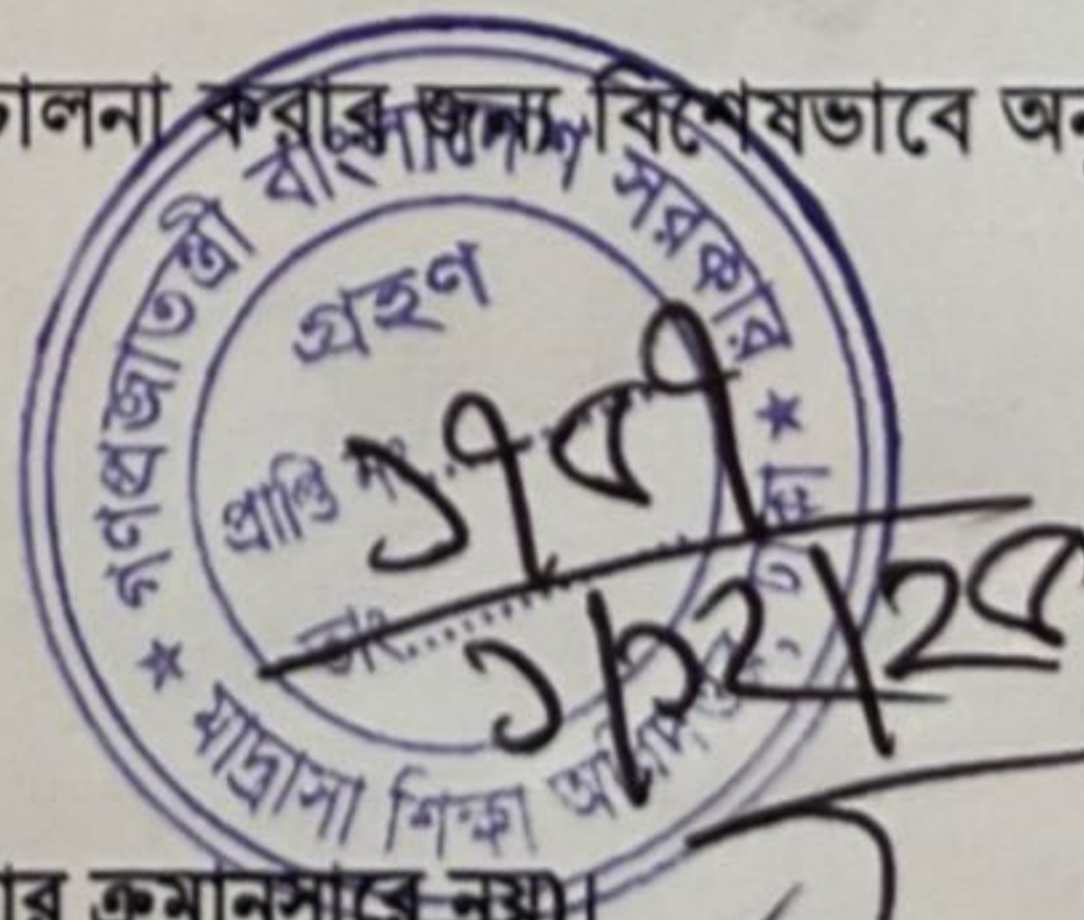 চালনা করার জন্য বিশেষভাবে
গণপ্রজাতন্ত্রী বাংলাদেশ সরকার
গ্রহণ
প্রাপ্তি নং.....
তাং.....
★ মাদ্রাসা শিক্ষা অধিদপ্তর, ঢাকা ★
ক্রমানুসারে নয়)।